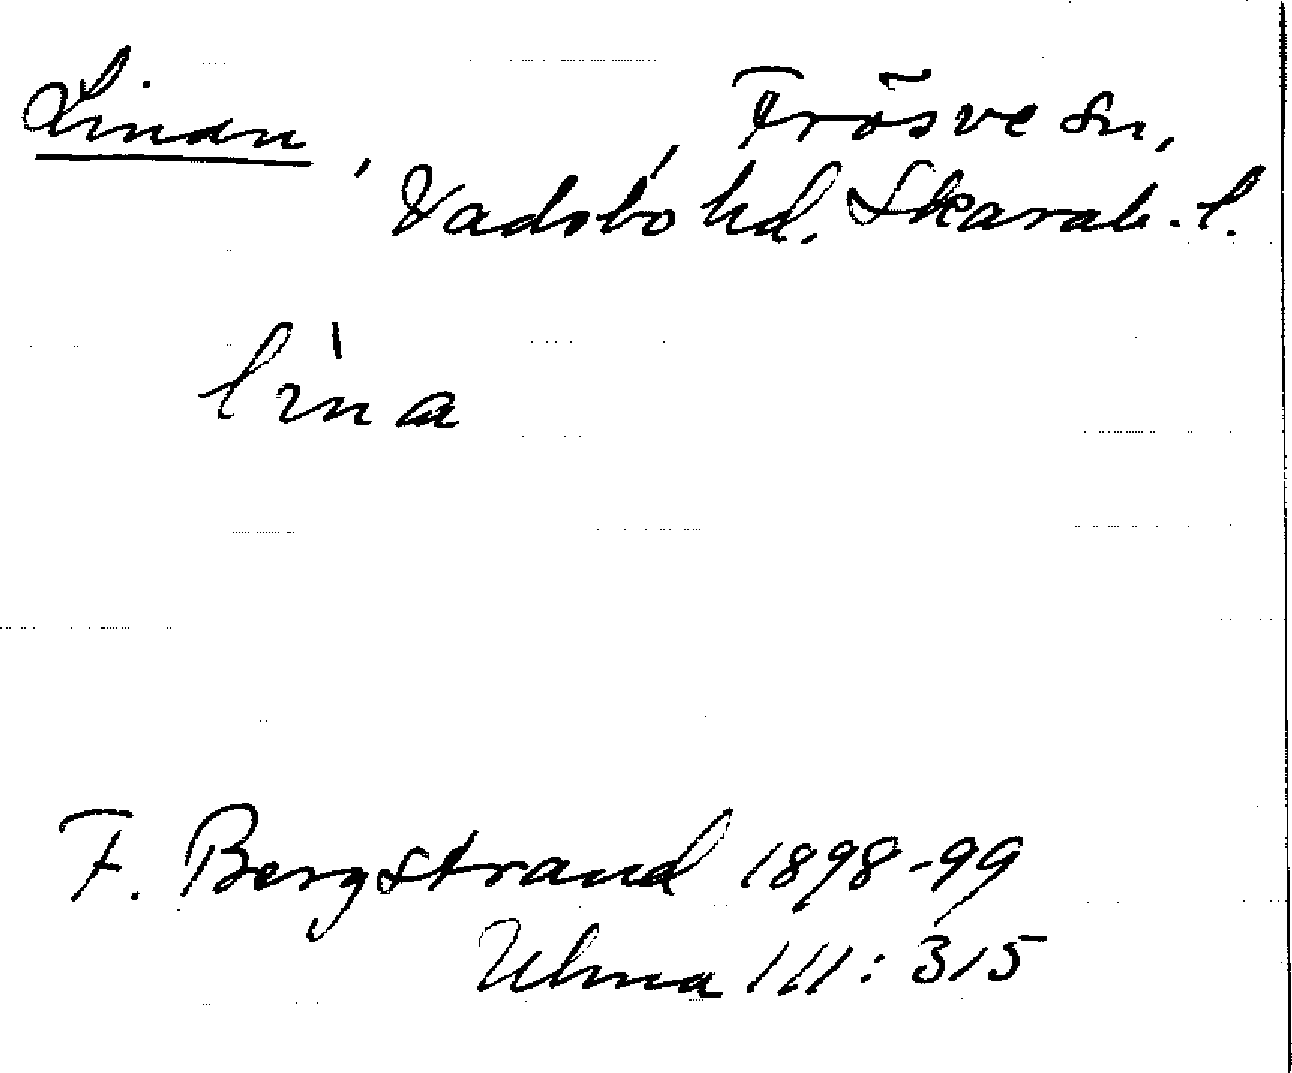 Linan, Frösve sn,
Vadsbo hd. Skarab. l.
lina
F. Bergstrand 1898-99
Ulma 111:315